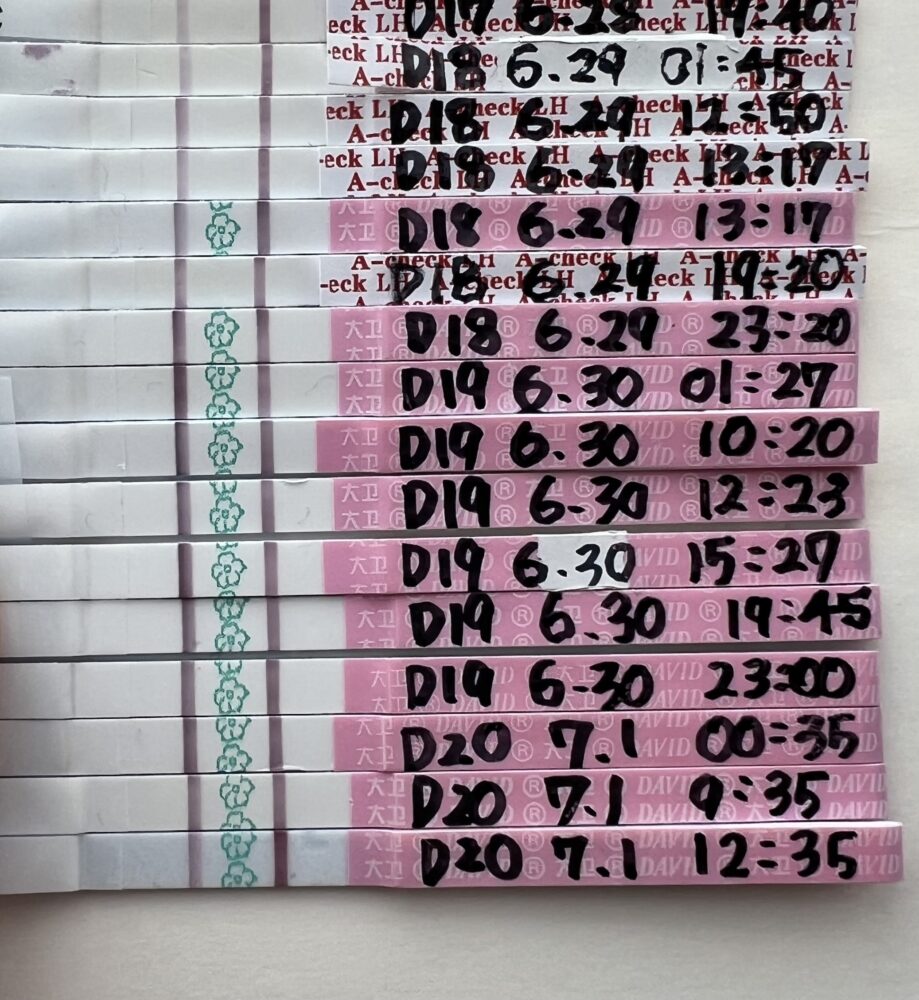 D17 6.28 19:40
eck LH A-check LH
D18 6.29 01:45
A-check
D18 6.29 12:50
eck LH A-check LH A-check
D18 6.29 13:17
eck LH A-check LH A-check L
大卫 ® D18 6.29 13:17
D18 6.29 19:20
A-check LH A-check LH A-
大卫 ® D18 6.29 23:20
大卫 ® D19 6.30 01:27 DAVID
大卫 ® D19 6.30 10:20 DAVID
大卫 ® D19 6.30 12:23
大卫 D19 6.30 15:27 DAVID
大卫 D19 6.30 19:45
大卫 D19 6.30 23:00 DAVID
大卫 D20 7.1 00:35 DAVID
大卫 D20 7.1 9:35 DAVID
大卫 D20 7.1 12:35 DAVID